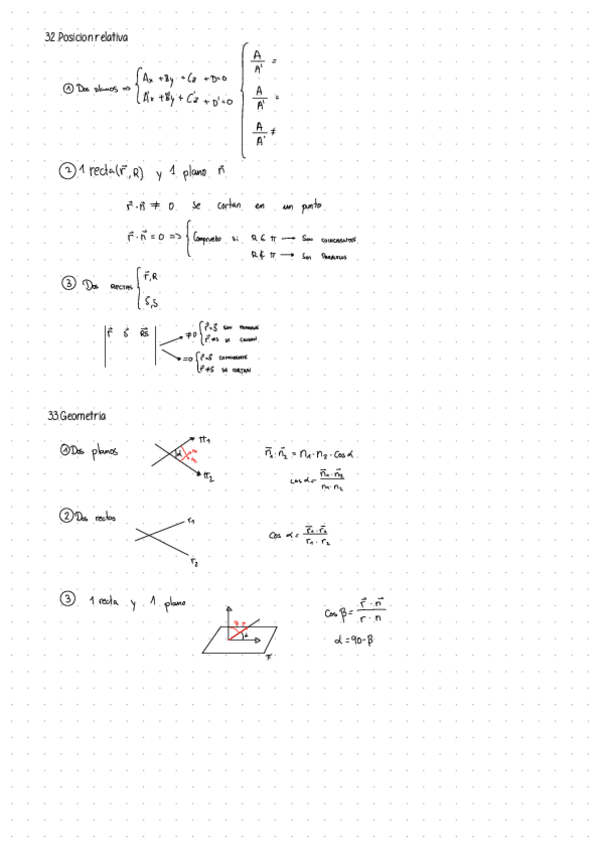 32.Posicion relativa
① Dos planos => { Ax + By + Cz + D=0
A'x + B'y + C'z + D'=0
A/A' =
A/A' =
A/A' ≠
② 1 recta (r⃗, R) y 1 plano n⃗
r⃗ · n⃗ ≠ 0 se cortan en un punto
r⃗ · n⃗ = 0 => { Compruebo si R ∈ π → Son coincidentes
R ∉ π → Son Paralelos
③ Dos RECTAS { r⃗, R
s⃗, S
| r⃗ s⃗ RS⃗ |
≠0 { r⃗=s⃗ son
r⃗≠s⃗ se
=0 { r⃗=s⃗ coincidente
r⃗≠s⃗ se cortan
33.Geometria
① Dos planos
π1
α
π2
n⃗1 · n⃗2 = n1 · n2 · cos α
cos α = n⃗1 · n⃗2 / n1 · n2
② Dos rectas
r1
r2
Cos α = r⃗1 · r⃗2 / r1 · r2
③ 1 recta y 1 plano
α
π
Cos β = r⃗ · n⃗ / r · n
α = 90-β